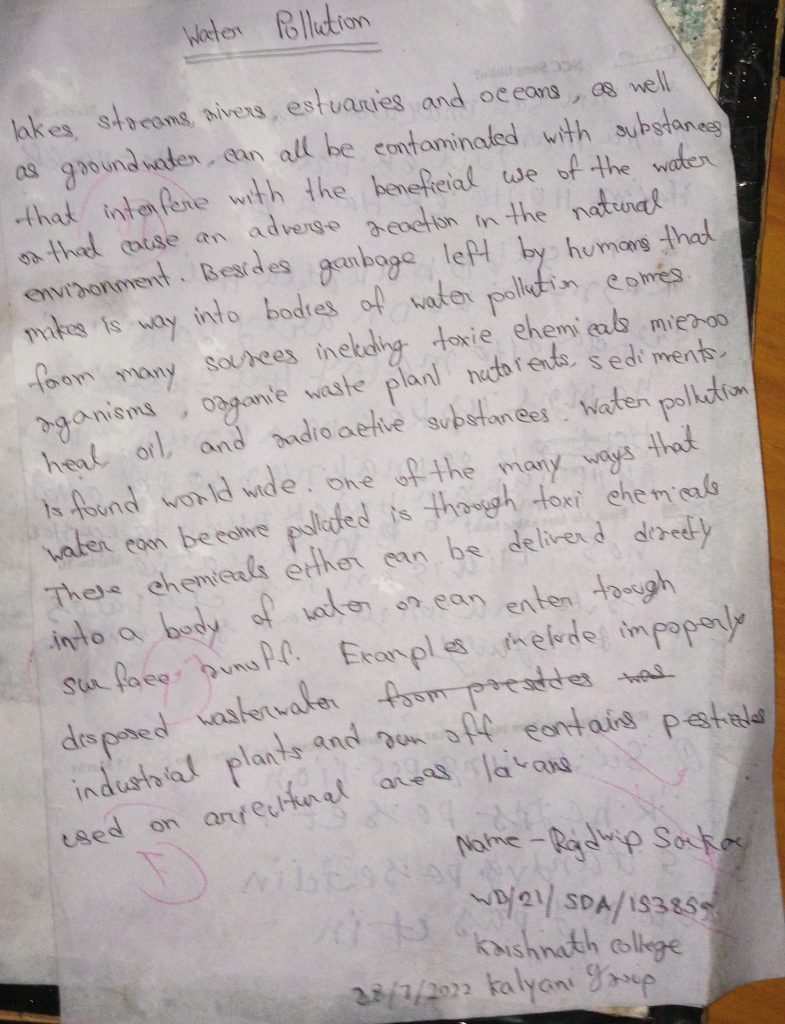 Water Pollution
lakes, streams, rivers, estuaries and oceans, as well
as groundwater, can all be contaminated with substances
that interfere with the beneficial use of the water
or that cause an adverse reaction in the natural
environment. Besides garbage left by humans that
makes is way into bodies of water pollution comes
from many sources including toxic chemicals micro
organisms, organic waste plant nutrients, sediments,
heat oil, and radioactive substances. Water pollution
is found world wide. one of the many ways that
water can become polluted is through toxi chemicals
These chemicals either can be deliverd directly
into a body of water or can enter trough
surface runoff. Examples include impoperly
disposed wasterwater
industrial plants and run off contains pesticides
used on aricultural areas
Name - Rajdwip Sarkar
WB/21/SDA/153859
Krishnath college
28/7/2022 Kalyani Group